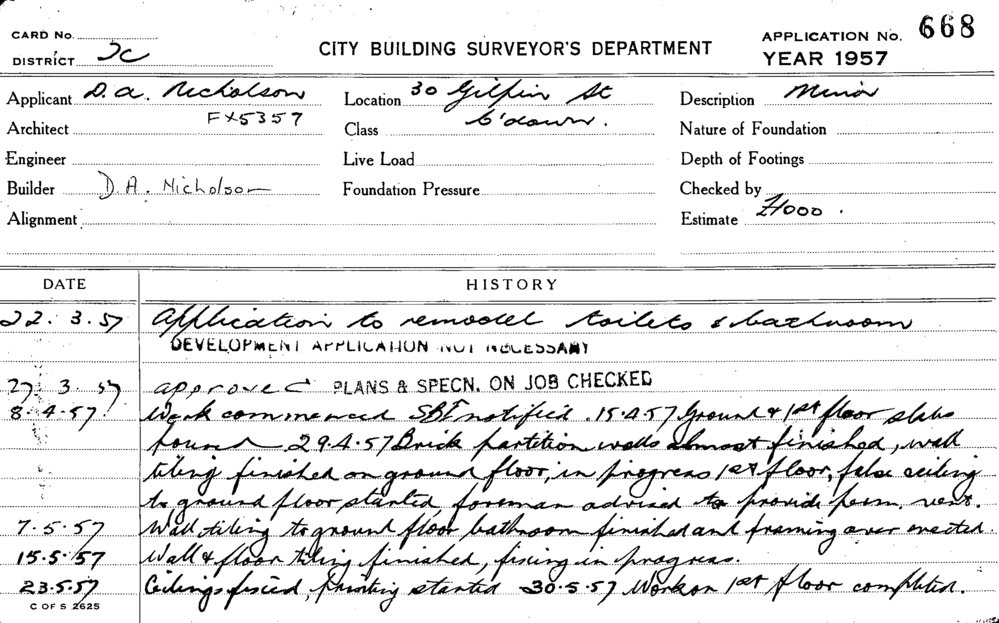 CARD No.
DISTRICT
CITY BUILDING SURVEYOR'S DEPARTMENT
APPLICATION No. 668
YEAR 1957
Applicant D. A. Nicholson
Location 30 Gilpin St
Description Minor
Architect FX5357
Class C'down.
Nature of Foundation
Engineer
Live Load
Depth of Footings
Builder D. A. Nicholson
Foundation Pressure
Checked by
Alignment
Estimate £1000.
DATE HISTORY
22. 3. 57 Application to remodel toilets & bathroom
DEVELOPMENT APPLICATION NOT NECESSARY
27 3. 57 approved PLANS & SPECN. ON JOB CHECKED
8. 4. 57 Work commenced SBI notified. 15.4.57 Ground & 1st floor slabs
poured 29.4.57 Brick partition walls almost finished, wall
tiling finished on ground floor, in progress 1st floor, false ceiling
to ground floor started foreman advised to provide perm. vent.
7. 5. 57 Wall tiling to ground floor bathroom finished and framing over erected.
15. 5. 57 Wall & floor tiling finished, fixing in progress.
23.5.57 Ceilings fixed, painting started 30.5.57 Work on 1st floor completed.
C OF S 2625